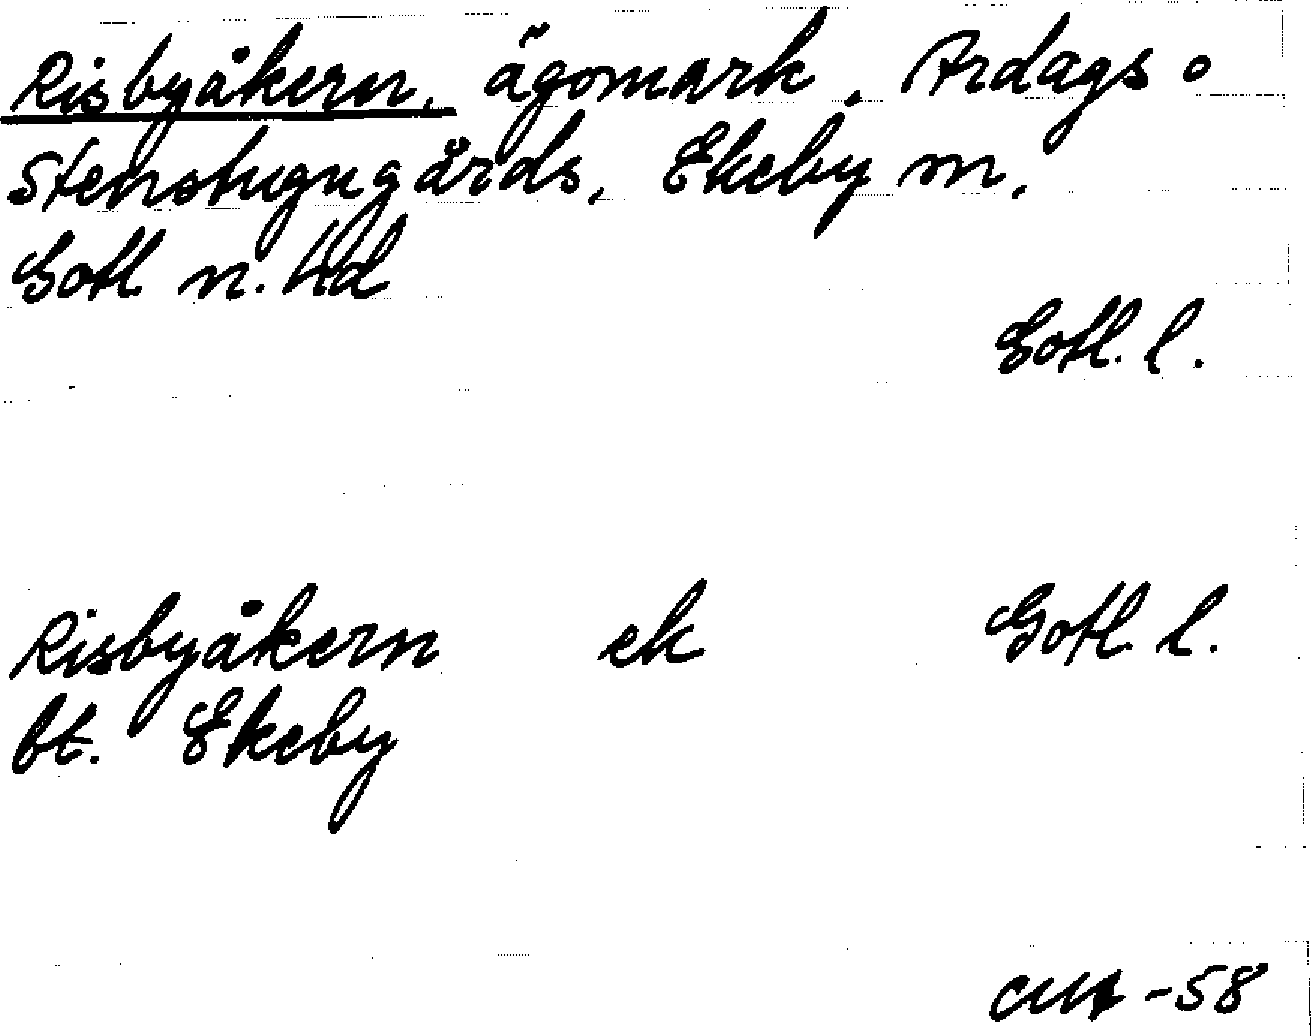 Risbyåkern, ägomark. Ardags o
Stenstugugårds, Ekeby sn,
Gotl n. hd
Gotl. l.
Risbyåkern ek Gotl. l.
bt. Ekeby
-58